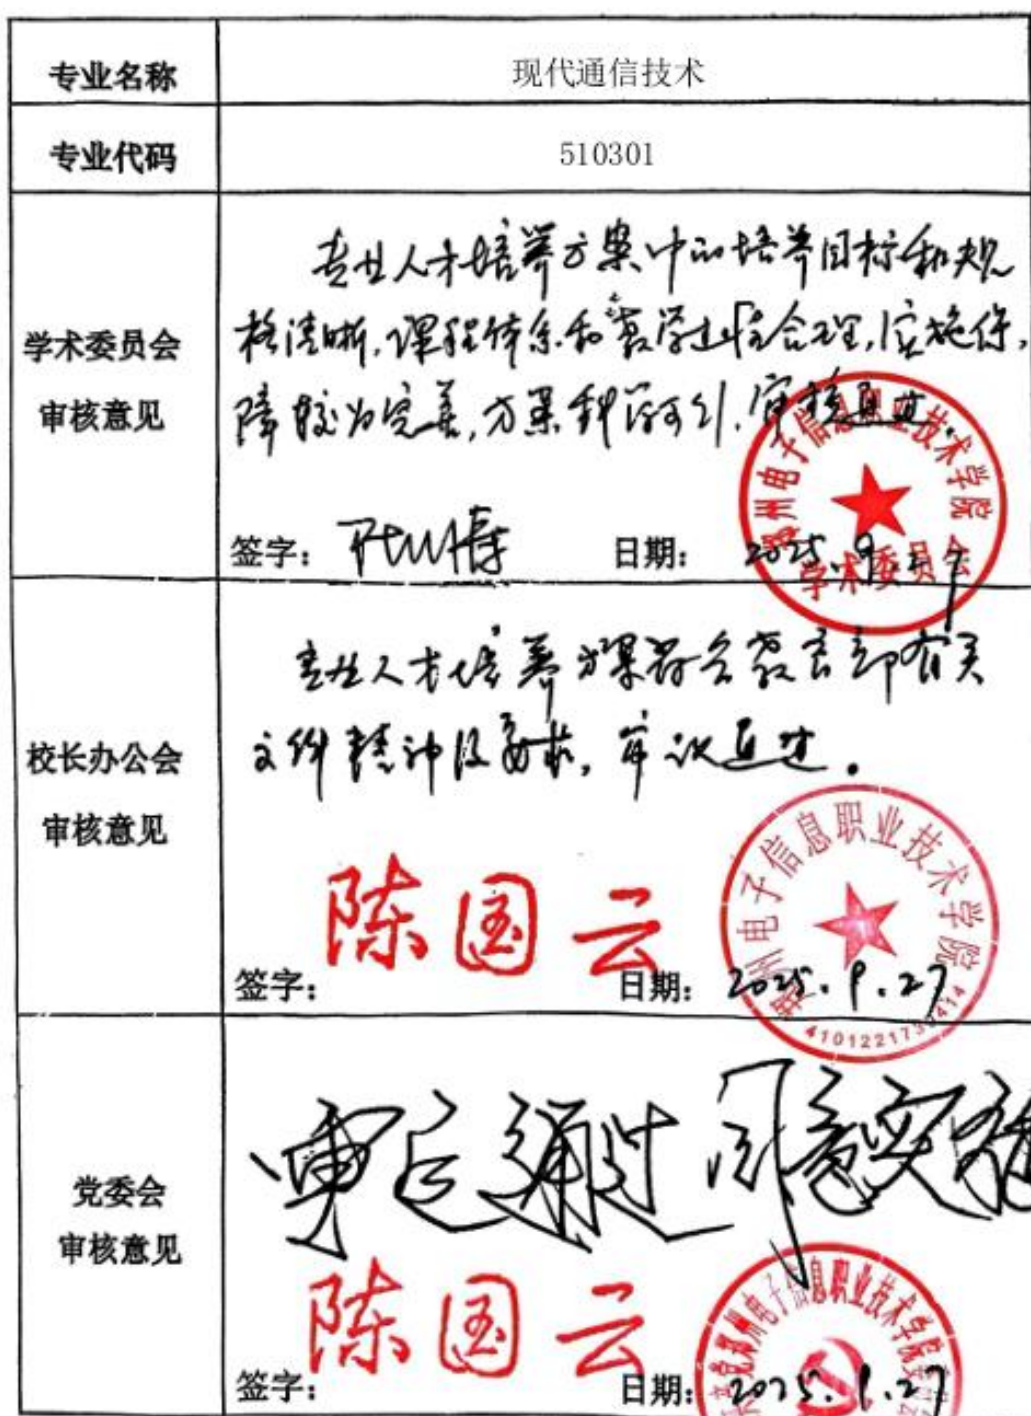 专业名称
现代通信技术
专业代码
510301
学术委员会
审核意见
专业人才培养方案中的培养目标和规
格清晰,课程体系和教学进程合理,实施保
障较为完善,方案科学可行,审核通过。
签字:
日期: 2025.9.27
郑州电子信息职业技术学院
学术委员会
校长办公会
审核意见
专业人才培养方案符合教育部有关
文件精神及要求,审议通过。
陈国云
签字:
日期: 2025.9.27
郑州电子信息职业技术学院
党委会
审核意见
审定通过 同意实施
陈国云
签字:
日期: 2025.9.27
郑州电子信息职业技术学院